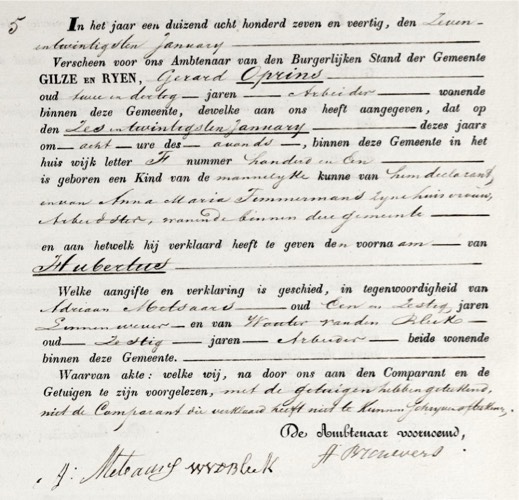 5
In het jaar een duizend acht honderd zeven en veertig, den Zeven-
entwintigsten january
Verscheen voor ons Ambtenaar van den Burgerlijken Stand der Gemeente
GILZE EN RYEN, Gerard Oprins
oud twee en dertig jaren Arbeider wonende
binnen deze Gemeente, dewelke aan ons heeft aangegeven, dat op
den Zes entwintigsten January dezes jaars
om acht ure des avonds, binnen deze Gemeente in het
huis wijk letter F nummer honderd en Een
is geboren een Kind van de mannelyke kunne van hem declarant,
en van Anna Maria Timmermans zyne huisvrouw,
Arbeidster, wonende binnen deze gemeente
en aan hetwelk hij verklaard heeft te geven den voornaam van
Hubertus
Welke aangifte en verklaring is geschied, in tegenwoordigheid van
Adriaan Metsaars oud Een en Zestig jaren
Linnenwever en van Wouter vanden Bleek
oud Zestig jaren Arbeider beide wonende
binnen deze Gemeente.
Waarvan akte: welke wij, na door ons aan den Comparant en de
Getuigen te zijn voorgelezen, met de getuigen hebben geteekend,
niet de Comparant die verklaard heeft niet te kunnen schryven of teekenen,
De Ambtenaar voornoemd,
A: Metsaars WVDBleek A Brouwers